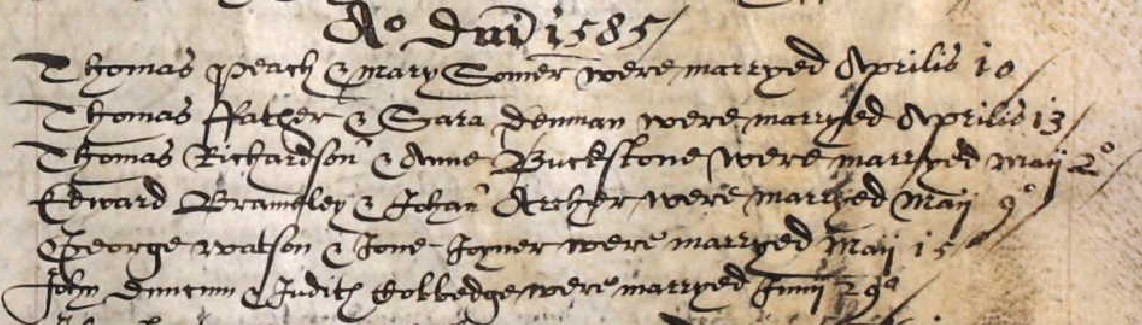 Ao Dni 1585
Thomas Peach & mary Somer were marryed Aprilis 10
Thomas ffather & Sara Denman were marryed Aprilis 13
Thomas Richardson & Anne Buckstone were marryed maij 2o
Edward Brameley & Johan Archer were marryed Maij 9o
George watson & Jone Joyner were marryed Maij 15
John & Judith were marryed Junij 29o